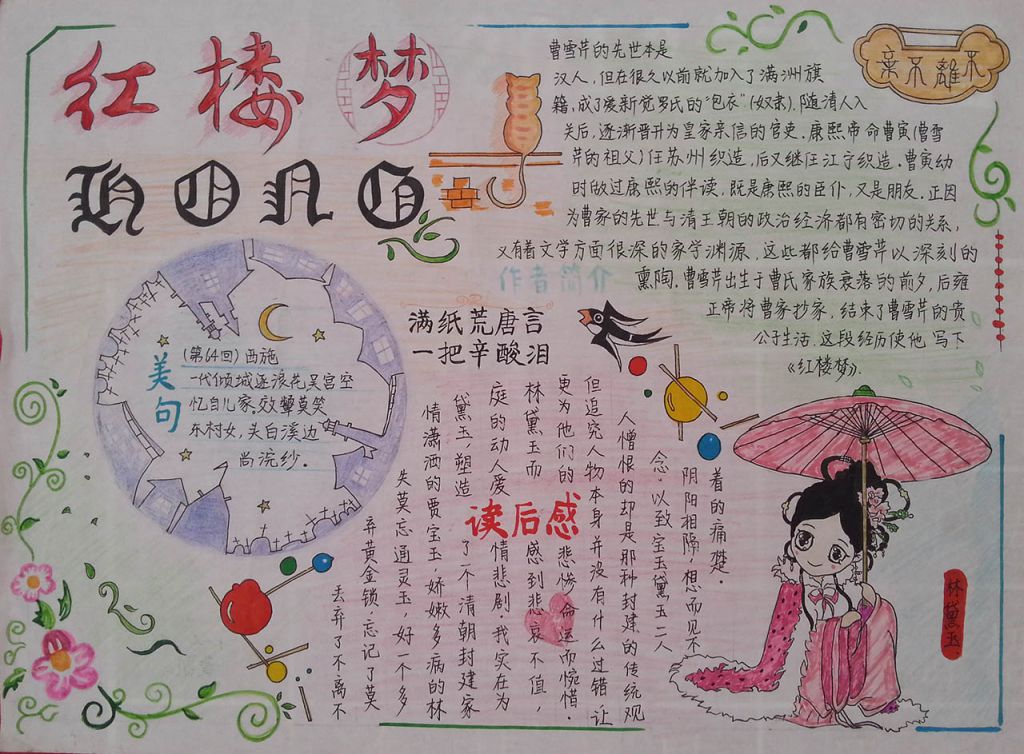 红楼梦
HONG
棄不離不
曹雪芹的先世本是
汉人，但在很久以前就加入了满洲旗
籍，成了爱新觉罗氏的“包衣”(奴隶)，随清人入
关后，逐渐晋升为皇家亲信的官吏。康熙帝命曹寅(曹雪
芹的祖父)任苏州织造，后又继任江宁织造。曹寅幼
时做过康熙的伴读，既是康熙的臣仆，又是朋友。正因
为曹家的先世与清王朝的政治经济都有密切的关系，
又有着文学方面很深的家学渊源，这些都给曹雪芹以深刻的
熏陶。曹雪芹出生于曹氏家族衰落的前夕，后雍
正帝将曹家抄家，结束了曹雪芹的贵
公子生活。这段经历使他写下
《红楼梦》.
作者简介
满纸荒唐言
一把辛酸泪
美句
(第64回)西施
一代倾城逐浪花吴宫空
忆自儿家.效颦莫笑
东村女,头白溪边
尚浣纱.
读后感
丢弃了不离不
弃黄金锁，忘记了莫
失莫忘通灵玉，好一个多
情潇洒的贾宝玉，娇嫩多病的林
黛玉，塑造了一个清朝封建家
庭的动人爱情悲剧。我实在为
林黛玉而感到悲哀不值，
更为他们的悲惨命运而惋惜。
但追究人物本身并没有什么过错让
人憎恨的却是那种封建的传统观
念，以致宝玉黛玉二人
阴阳相隔，想而见不
着的痛楚。
林黛玉